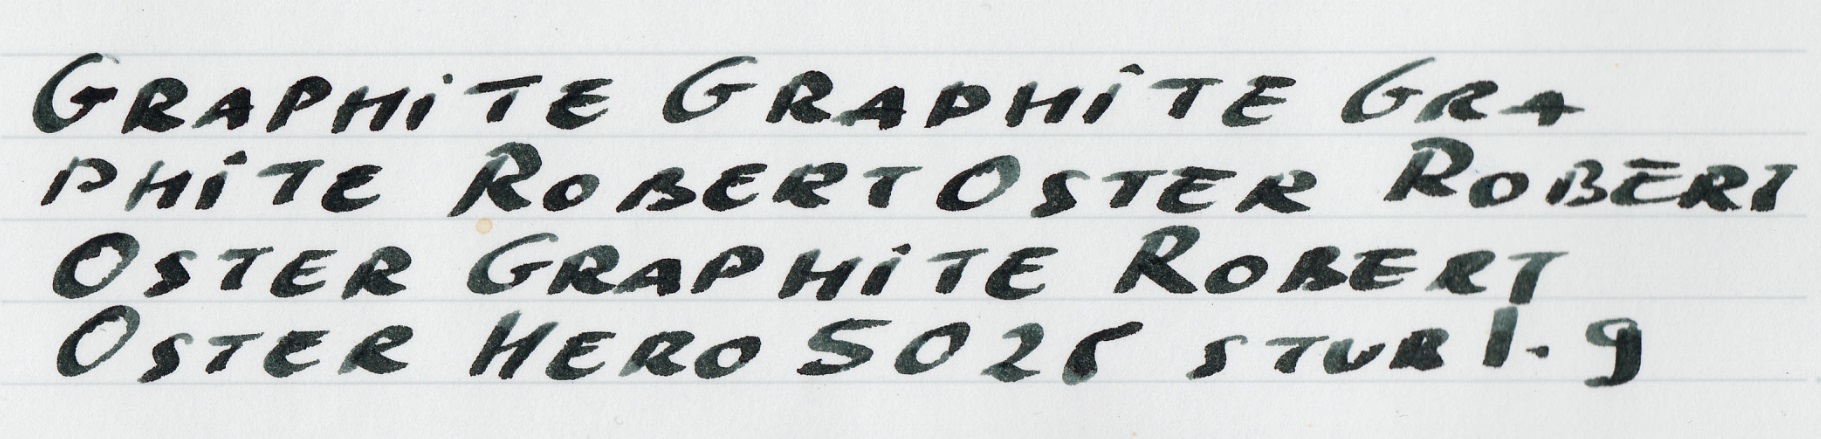 GRAPHiTE GRAPHiTE GRA
PHiTE ROBERT OSTER ROBERT
OSTER GRAPHiTE ROBERT
OSTER HERO 5026 STUB 1.9